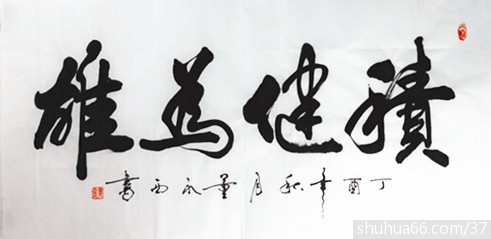 積健為雄
丁酉年秋月董永西書
shuhua66.com/37